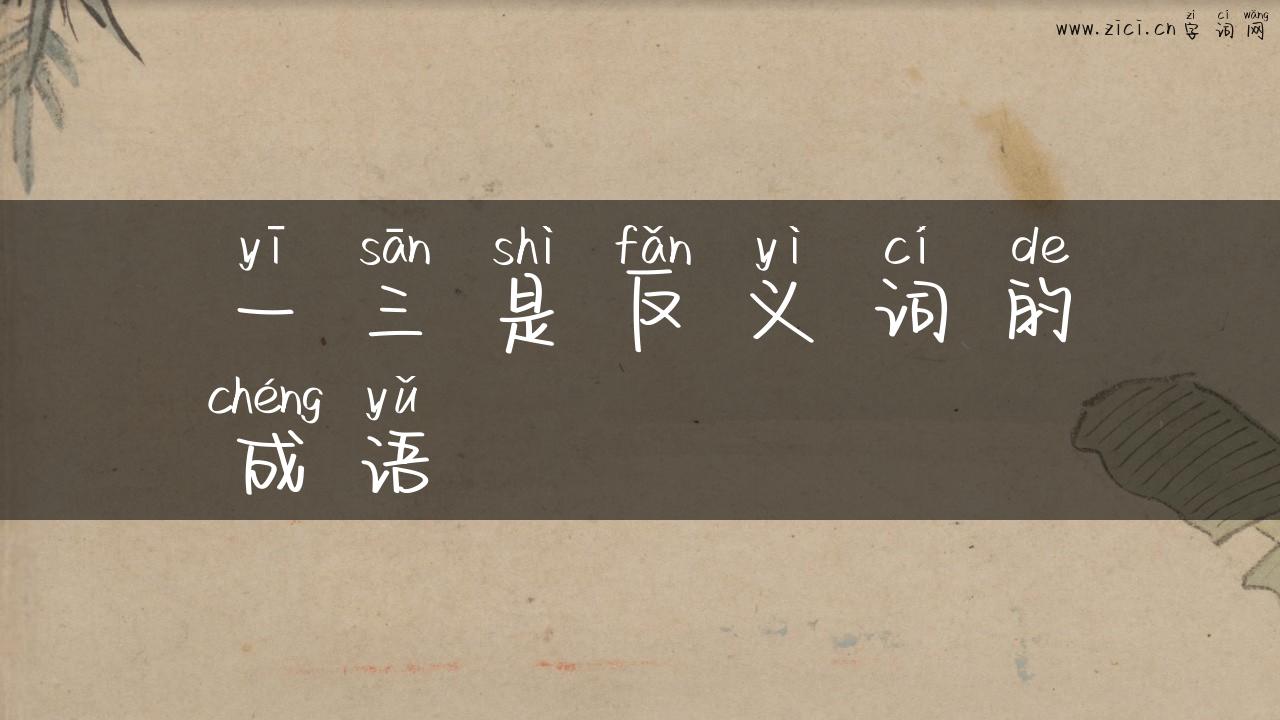 zì cí wǎng
www.zici.cn 字词网
yī sān shì fǎn yì cí de
一三是反义词的
chéng yǔ
成语